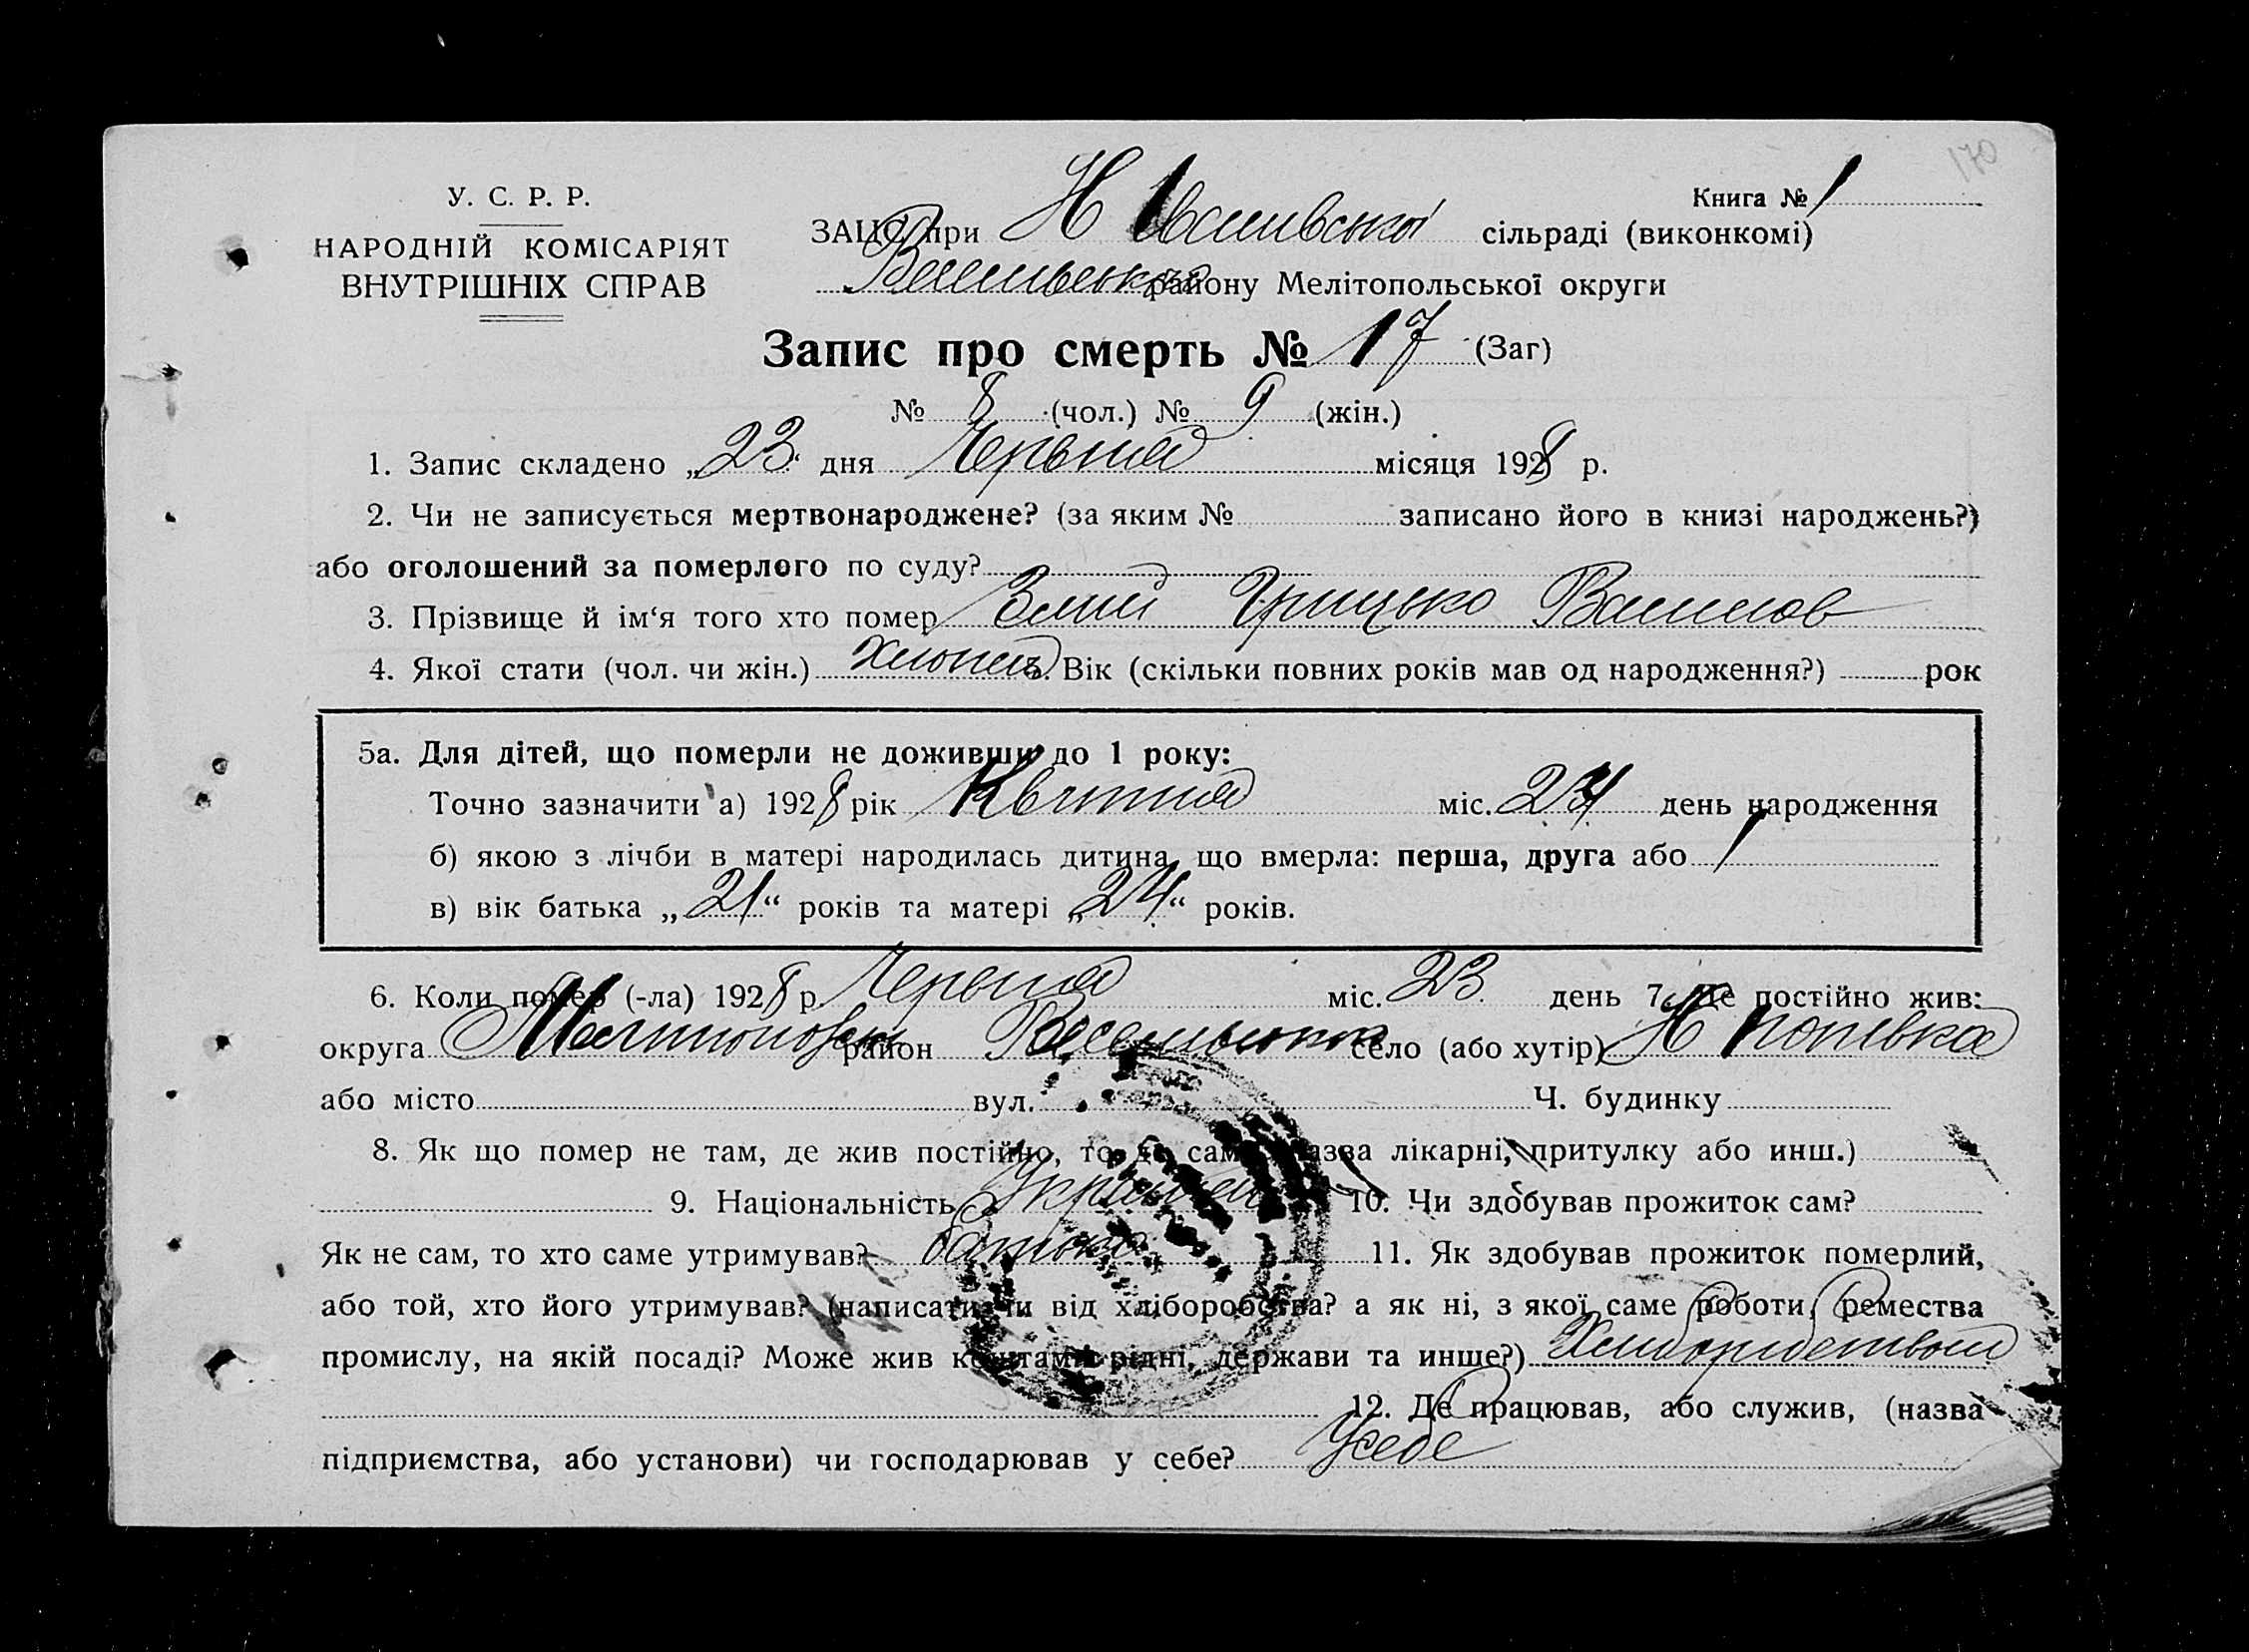 170
У. С. Р. Р.
НАРОДНІЙ КОМІСАРІЯТ
ВНУТРІШНІХ СПРАВ
Книга № 1
ЗАЦС при Н сільраді (виконкомі)
району Мелітопольської округи
Запис про смерть № 17 (Заг)
№ 8 (чол.) № 9 (жін.)
1. Запис складено „23“ дня Червня місяця 1928 р.
2. Чи не записується мертвонароджене? (за яким № записано його в книзі народжень?)
або оголошений за померлого по суду?
3. Прізвище й ім‘я того хто помер Змий Грицько Васильов
4. Якої стати (чол. чи жін.) Хлопець Вік (скільки повних років мав од народження?) рок
5а. Для дітей, що померли не доживши до 1 року:
Точно зазначити а) 1928 рік Квитня міс. 24 день народження
б) якою з лічби в матері народилась дитина, що вмерла: перша, друга або 1
в) вік батька „21“ років та матері „24“ років.
6. Коли помер (-ла) 1928 р. Червня міс. 23 день 7. Де постійно жив:
округа район село (або хутір) Н Попівка
або місто вул. Ч. будинку
8. Як що помер не там, де жив постійно, то де саме (назва лікарні, притулку або инш.)
9. Національність 10. Чи здобував прожиток сам?
Як не сам, то хто саме утримував? батько 11. Як здобував прожиток померлий,
або той, хто його утримував? (написати чи від хліборобства? а як ні, з якої саме роботи, ремества
промислу, на якій посаді? Може жив коштами рідні, держави та инше?)
12. Де працював, або служив, (назва
підприємства, або установи) чи господарював у себе? У себе